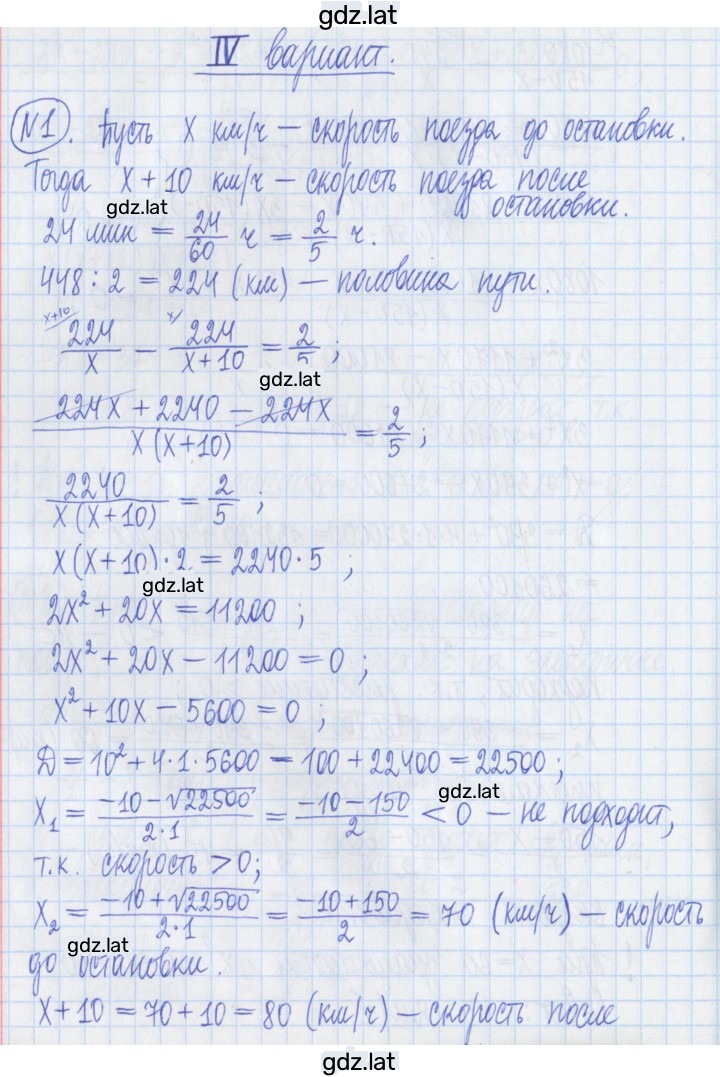 gdz.lat
IV вариант.
№1. Пусть x км/ч — скорость поезда до остановки.
Тогда x + 10 км/ч — скорость поезда после
gdz.lat
остановки.
24 мин = 24/60 ч = 2/5 ч.
448 : 2 = 224 (км) — половина пути.
x+10/ 224/x − x/ 224/(x+10) = 2/5 ;
gdz.lat
(224x + 2240 − 224x)/(x(x+10)) = 2/5 ;
2240/(x(x+10)) = 2/5 ;
x(x+10)·2 = 2240·5 ;
gdz.lat
2x² + 20x = 11200 ;
2x² + 20x − 11200 = 0 ;
x² + 10x − 5600 = 0 ;
Д = 10² + 4·1·5600 = 100 + 22400 = 22500 ;
gdz.lat
x₁ = (−10 − √22500)/(2·1) = (−10 − 150)/2 < 0 — не подходит,
т.к. скорость > 0;
x₂ = (−10 + √22500)/(2·1) = (−10 + 150)/2 = 70 (км/ч) — скорость
gdz.lat
до остановки.
x + 10 = 70 + 10 = 80 (км/ч) — скорость после
gdz.lat